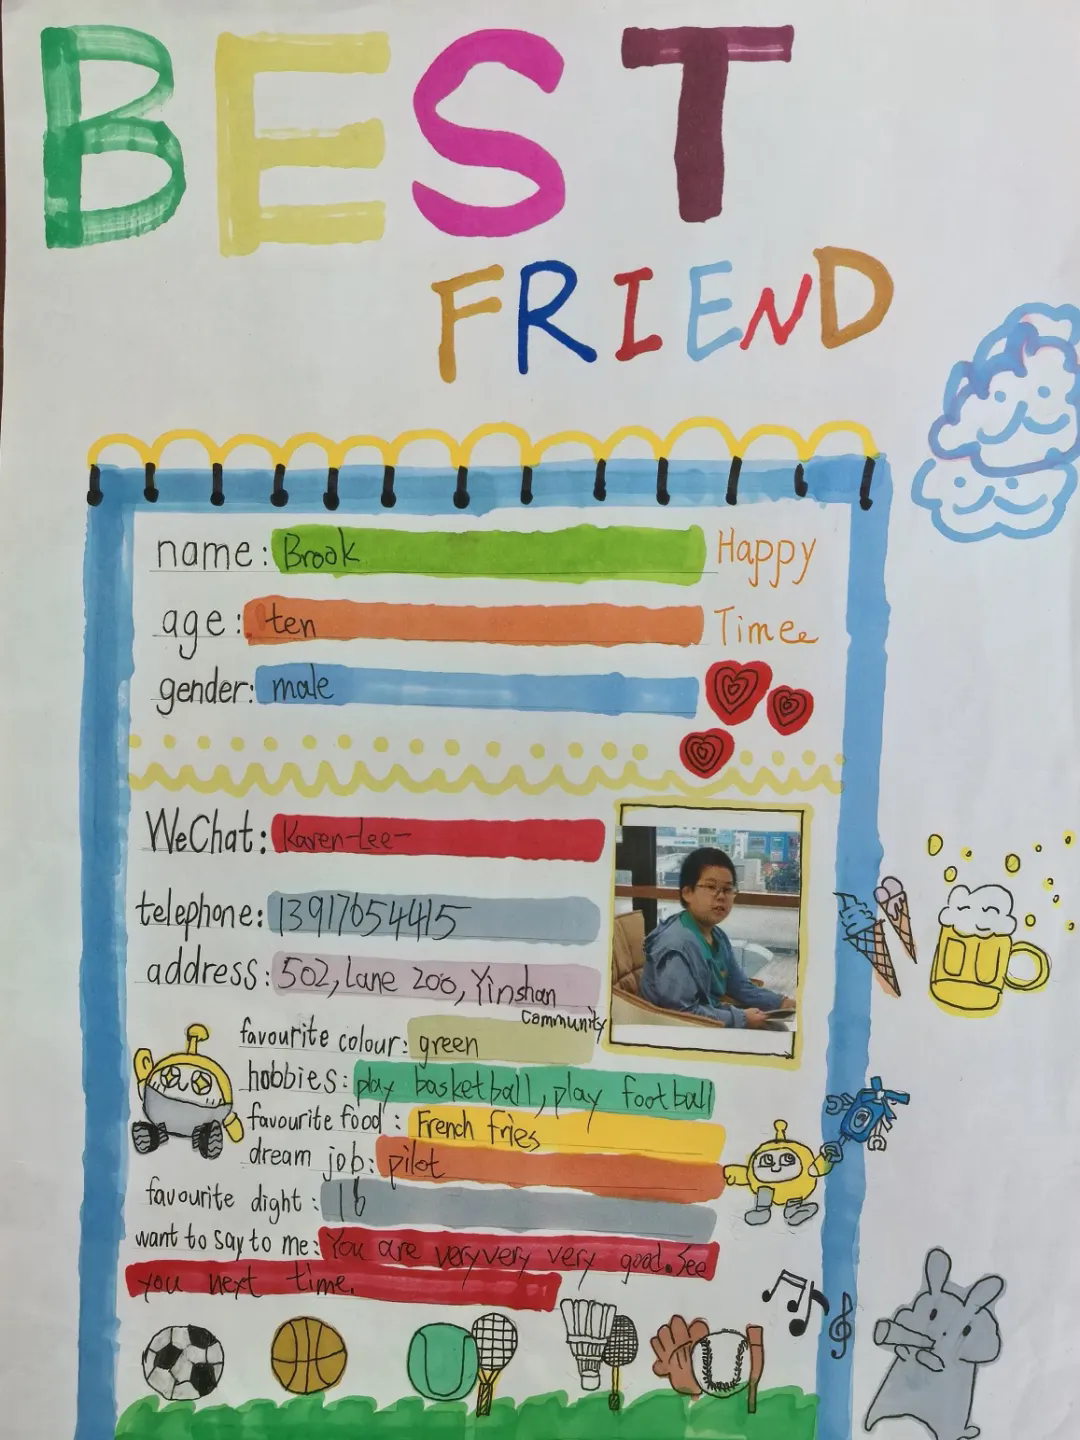 BEST
FRIEND
name: Brook
Happy
age: ten
Timee
gender: male
WeChat: Karen-Lee-
telephone: 13917654415
address: 502, Lane 200, Yinshan
Community
favourite colour: green
hobbies: play basketball, play football
favourite food: French fries
dream job: pilot
favourite dight: 16
want to say to me: You are veryvery very good. See
you next time.